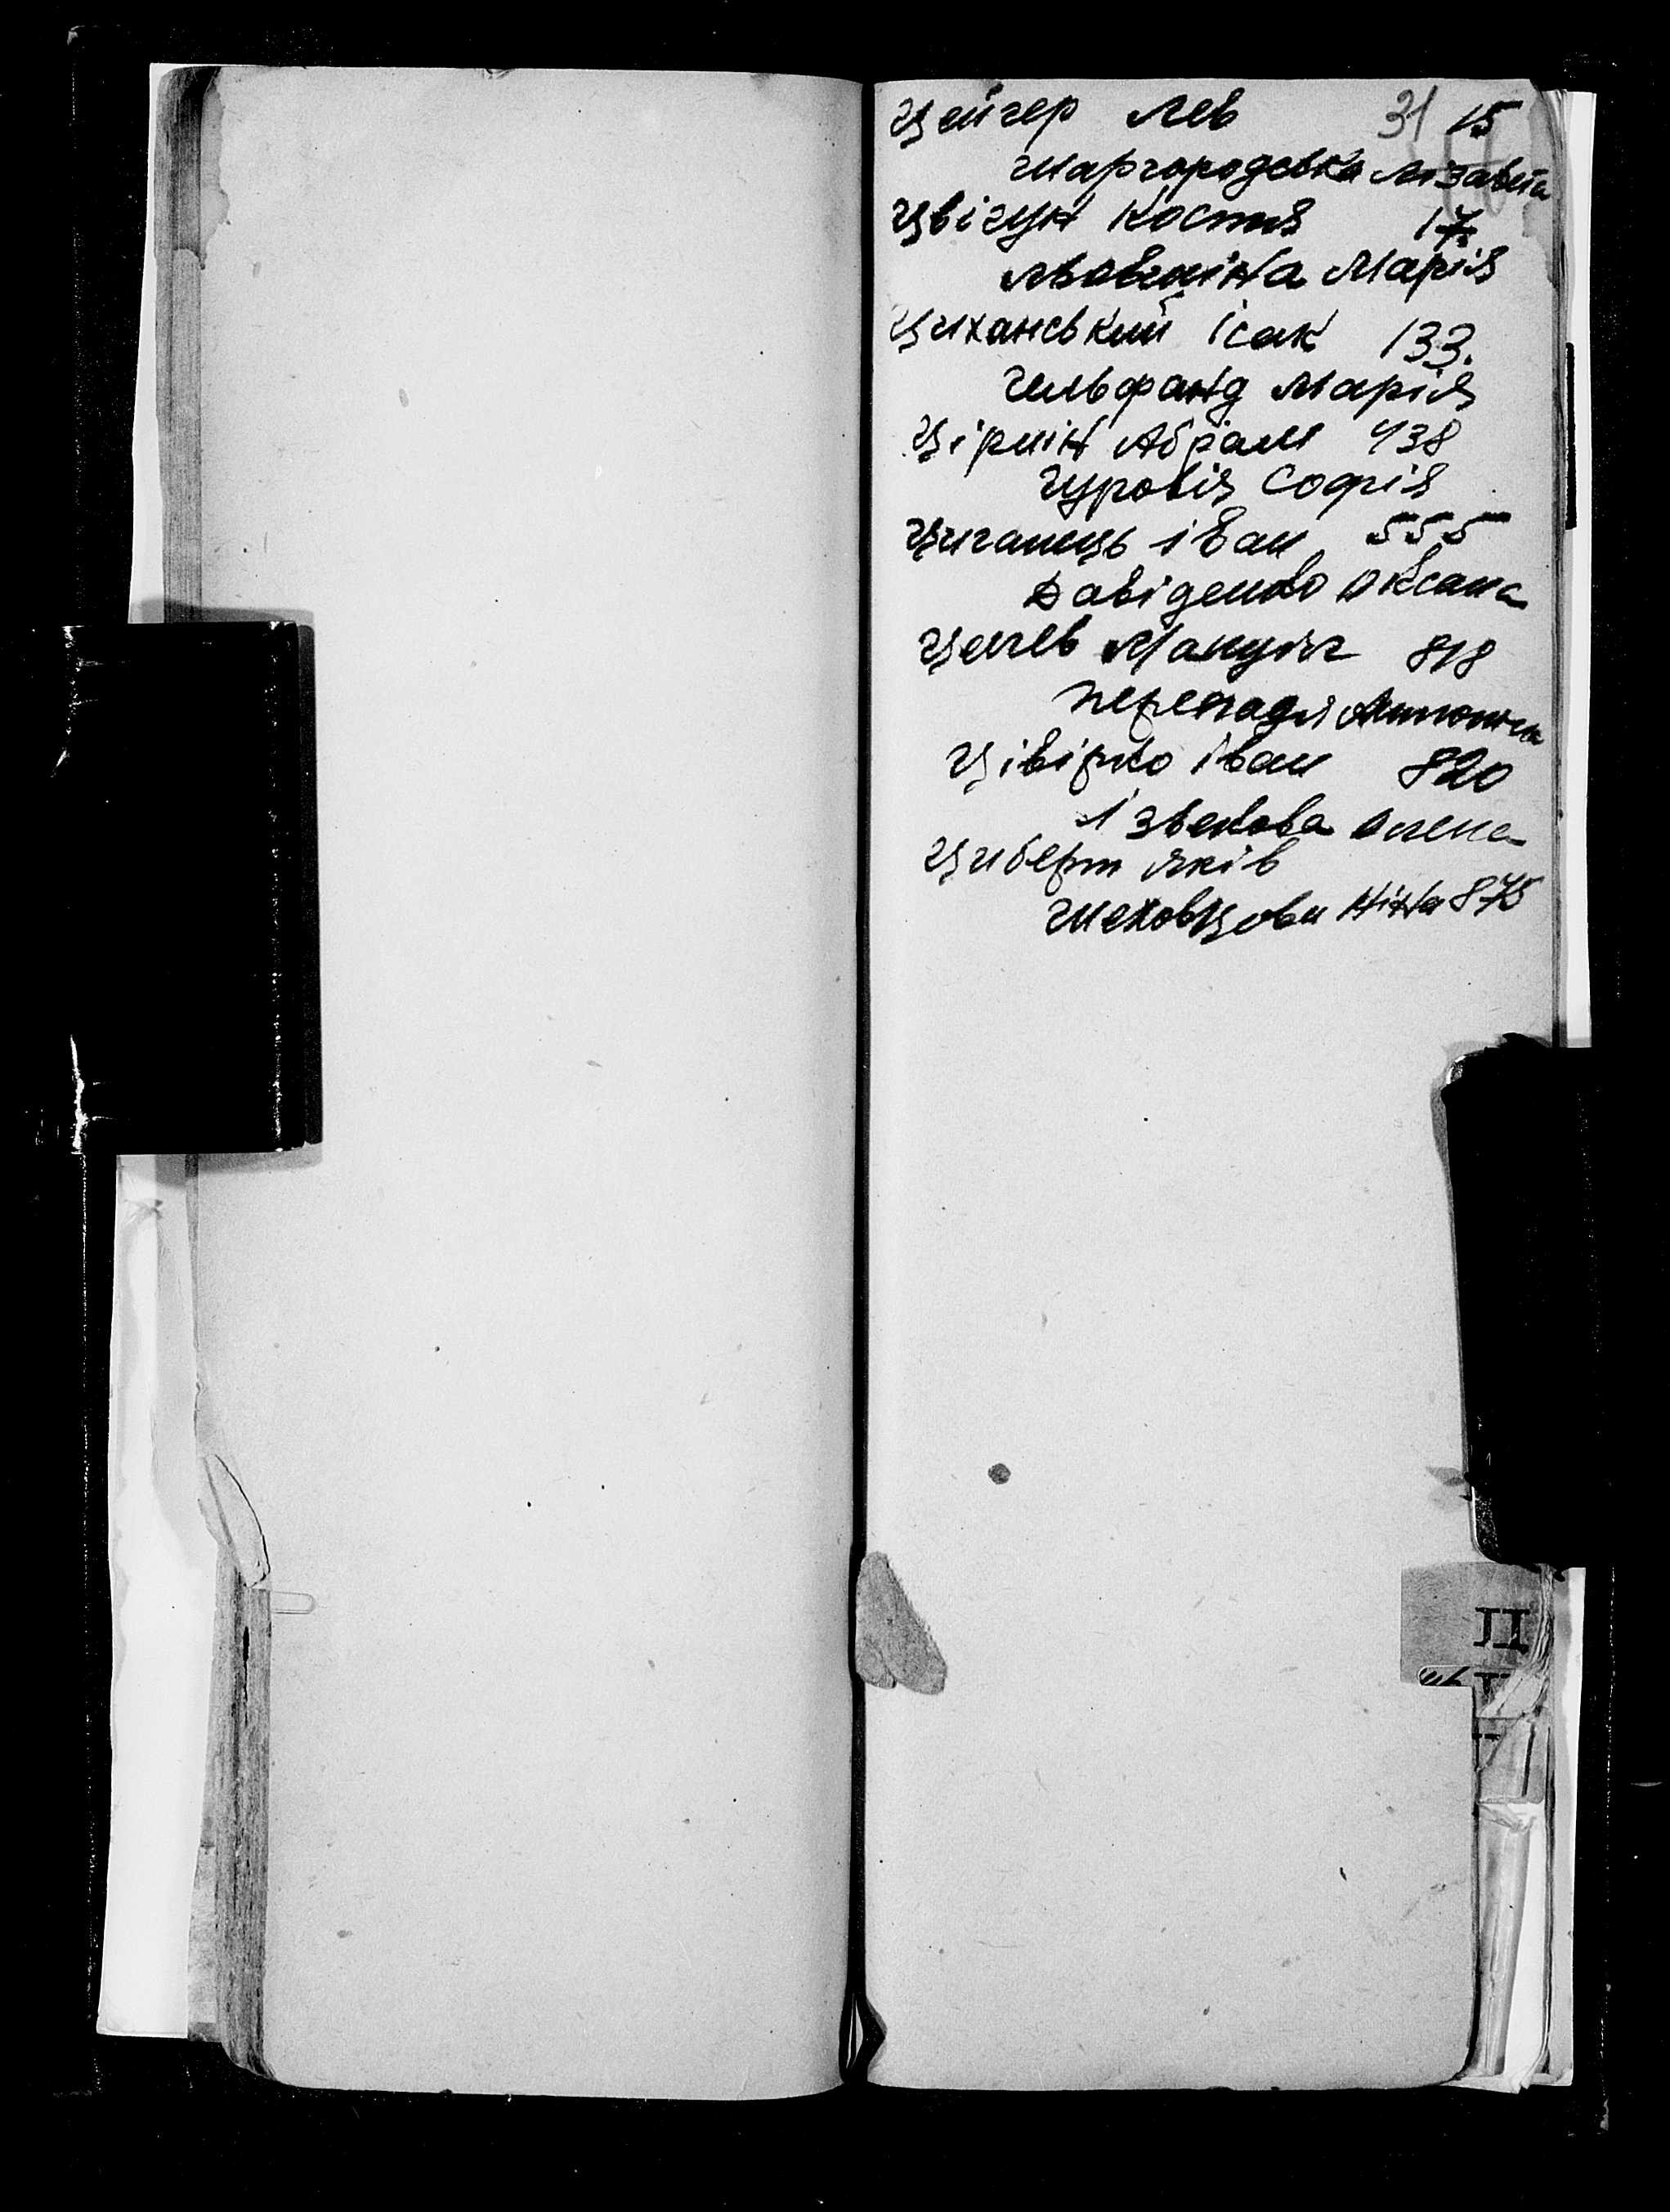 Цейгер Лев 31 15
Шаргородська Лізавета
Цвігун Костя 17
Мовшіна Марія
Циханський Ісак 133.
Гельфанд Марія
Цірлін Абрам 438
Гуровія Софія
Циганець Іван 555
Давіденко Оксана
818
Цівірко Іван 820
Ізвекова Олена
Циберт Яків
Шеховцова Ніна 875